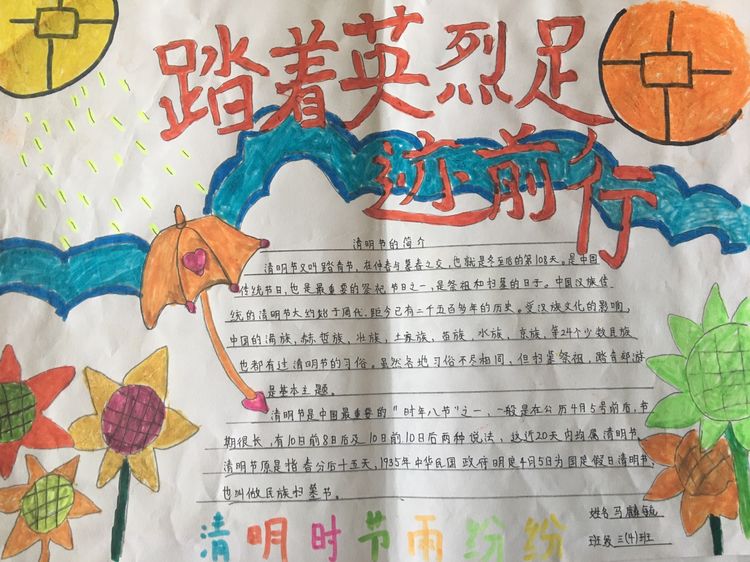 踏着英烈足
迹前行
清明节的简介
清明节又叫踏青节,在仲春与暮春之交,也就是冬至后的第108天。是中国
传统节日,也是最重要的祭祀节日之一,是祭祖和扫墓的日子。中国汉族传
统的清明节大约始于周代,距今已有二千五百多年的历史。受汉族文化的影响,
中国的满族、赫哲族、壮族、土家族、苗族、水族、京族、等24个少数民族
也都有过清明节的习俗。虽然各地习俗不尽相同、但扫墓祭祖,踏青郊游
是基本主题。
清明节是中国最重要的"时年八节"之一、一般是在公历4月5号前后,节
期很长,有10日前8日后及10日前10日后两种说法,这近20天内均属清明节。
清明节原是指春分后十五天,1935年中华民国政府明定4月5日为国定假日清明节,
也叫做民族扫墓节。
清明时节雨纷纷
姓名马麟毓
班级三(4)班